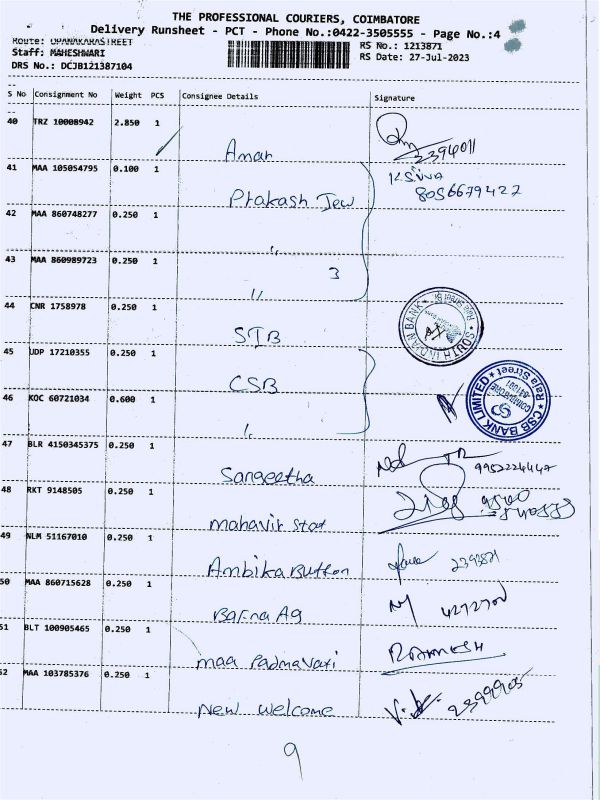 THE PROFESSIONAL COURIERS, COIMBATORE
Delivery Runsheet - PCT - Phone No.:0422-3505555 - Page No.:4
Route: OPANAKARASTREET
RS No.: 1213871
Staff: MAHESHWARI
RS Date: 27-Jul-2023
DRS No.: DCJB121387104
S No Consignment No Weight PCS Consignee Details Signature
40 TRZ 10008942 2.850 1
Amar
2394011
41 MAA 105054795 0.100 1
K.SIVA
Prakash Jew 8056679427
42 MAA 860748277 0.250 1
"
43 MAA 860989723 0.250 1
3
"
44 CNR 1758978 0.250 1
SIB
SOUTH INDIAN BANK
45 UDP 17210355 0.250 1
CSB
CSB BANK LIMITED
Raja Street
COIMBATORE
-641001
46 KOC 60721034 0.600 1
"
47 BLR 4150345375 0.250 1
Sangeetha 9952224447
48 RKT 9148505 0.250 1
Mahavir Stat
49 NLM 51167010 0.250 1
Ambika Button
50 MAA 860715628 0.250 1
Barna Ag
51 BLT 100905465 0.250 1
Maa Padmavati
52 MAA 103785376 0.250 1
New Welcome 2399905
9